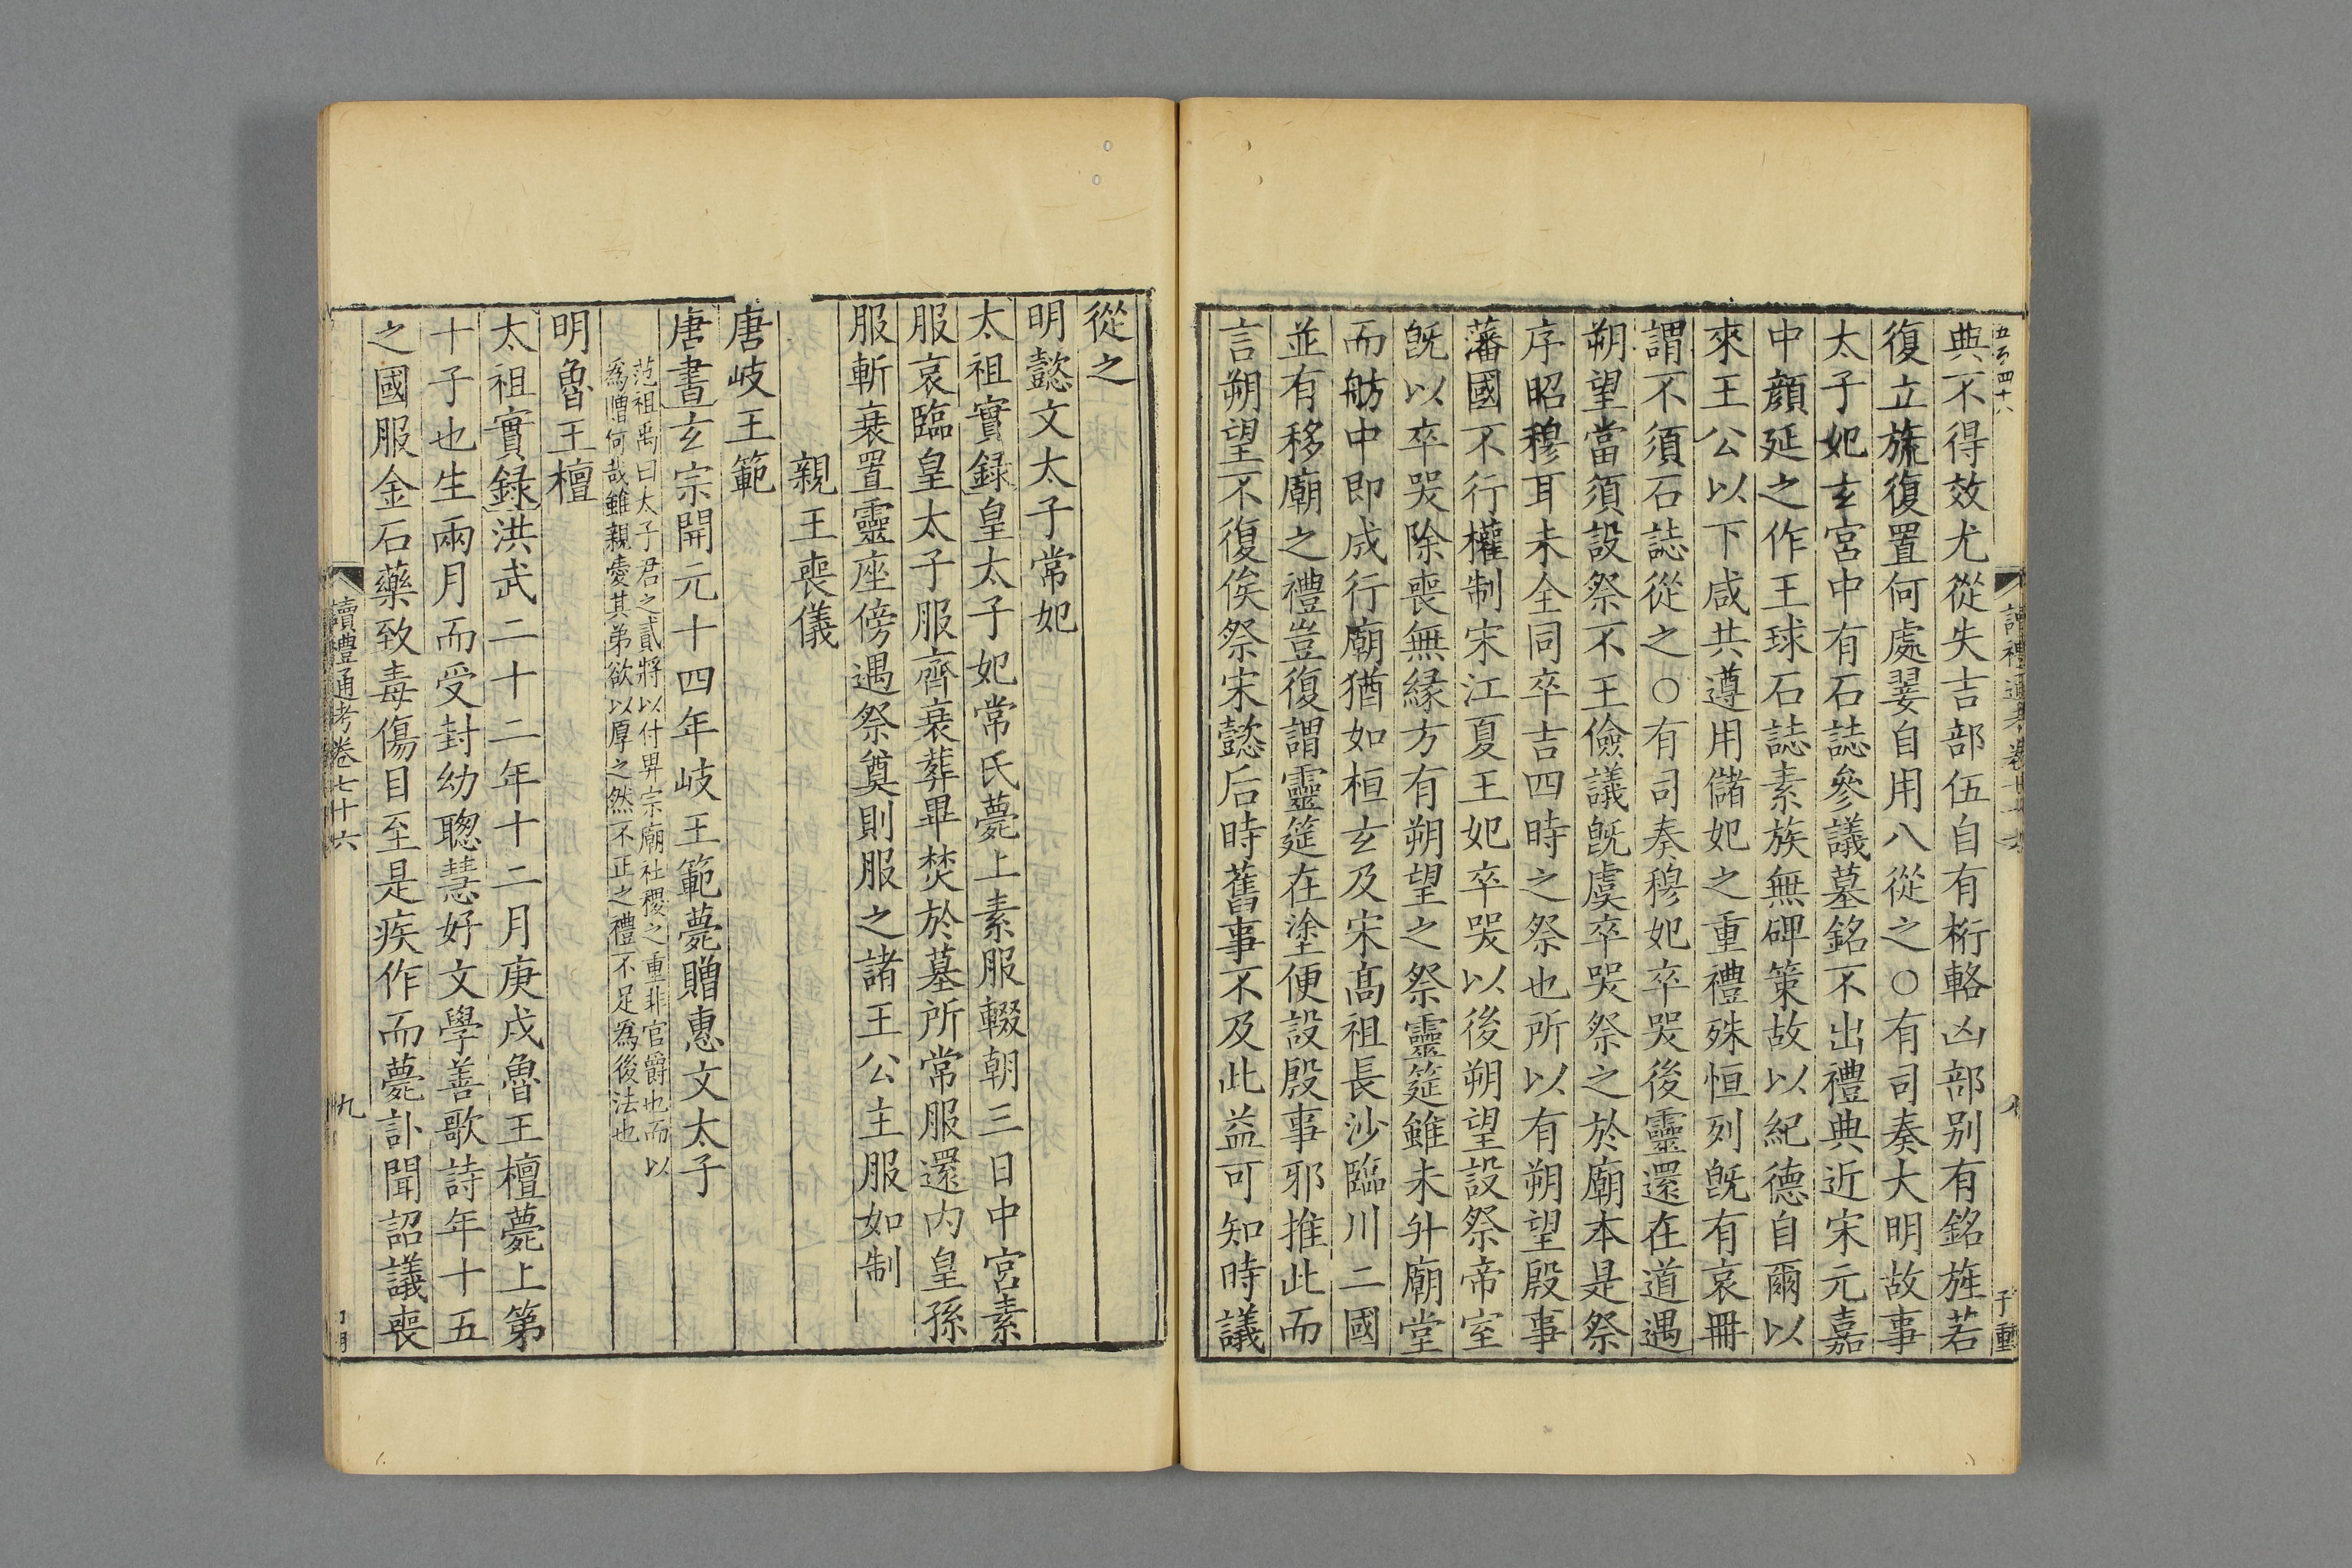 五百四十六
讀禮通考卷七十六
八
子重
典不得效尤從失吉部伍自有桁輅凶部别有銘旌若
復立旒復置何處翣自用八從之○有司奏大明故事
太子妃玄宮中有石誌參議墓銘不出禮典近宋元嘉
中顔延之作王球石誌素族無碑策故以紀德自爾以
來王公以下咸共遵用儲妃之重禮殊恒列旣有哀冊
謂不須石誌從之○有司奏穆妃卒哭後靈還在道遇
朔望當須設祭不王儉議旣虞卒哭祭之於廟本是祭
序昭穆耳未全同卒吉四時之祭也所以有朔望殷事
藩國不行權制宋江夏王妃卒哭以後朔望設祭帝室
旣以卒哭除喪無緣方有朔望之祭靈筵雖未升廟堂
而舫中即成行廟猶如桓玄及宋髙祖長沙臨川二國
並有移廟之禮豈復謂靈筵在塗便設殷事邪推此而
言朔望不復俟祭宋懿后時舊事不及此益可知時議
從之
明懿文太子常妃
太祖實録皇太子妃常氏薨上素服輟朝三日中宮素
服哀臨皇太子服齊衰葬畢焚於墓所常服還内皇孫
服斬衰置靈座傍遇祭奠則服之諸王公主服如制
親王喪儀
唐岐王範
唐書玄宗開元十四年岐王範薨贈惠文太子
范祖禹曰太子君之貳將以付畀宗廟社稷之重非官爵也而以
爲贈何哉雖親愛其弟欲以厚之然不正之禮不足爲後法也
明魯王檀
太祖實録洪武二十二年十二月庚戌魯王檀薨上第
十子也生兩月而受封幼聰慧好文學善歌詩年十五
之國服金石藥致毒傷目至是疾作而薨訃聞詔議喪
讀禮通考卷七十六
九